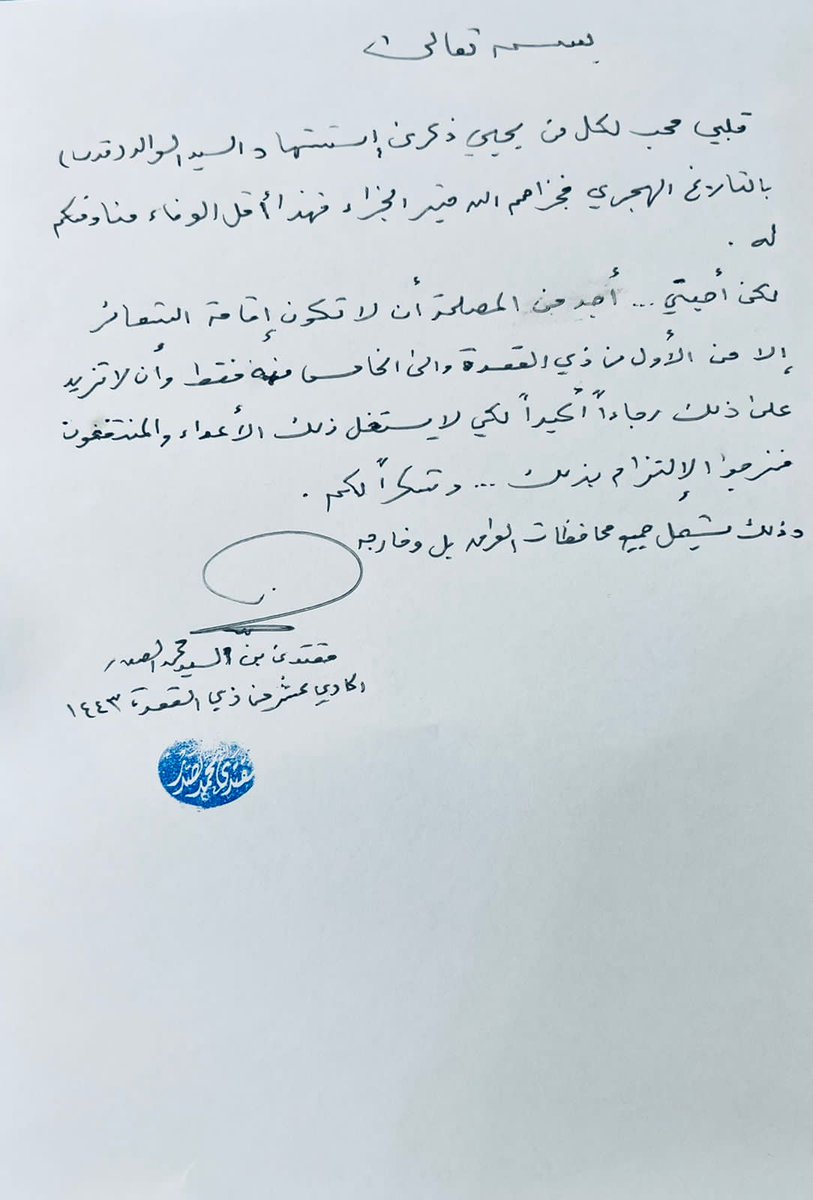 بسمه تعالى
قلبي محب لكل من يحيي ذكرى إستشهاد السيد الوالد (قدس)
بالتاريخ الهجري فجزاهم الله خير الجزاء فهذا أقل الوفاء منا ومنكم
له .
لكن أحبتي ... أجد من المصلحة أن لا تكون إقامة الشعائر
إلا من الأول من ذي القعدة والى الخامس منه فقط وأن لا تزيد
على ذلك رجاءاً أكيداً لكي لا يستغل ذلك الأعداء والمنتفعون
فنرجوا الإلتزام بذلك ... وشكراً لكم .
وذلك يشمل جميع محافظات العراق بل وخارجه
مقتدى بن السيد محمد الصدر
الحادي عشر من ذي القعدة ١٤٤٣
مقتدى محمد الصدر